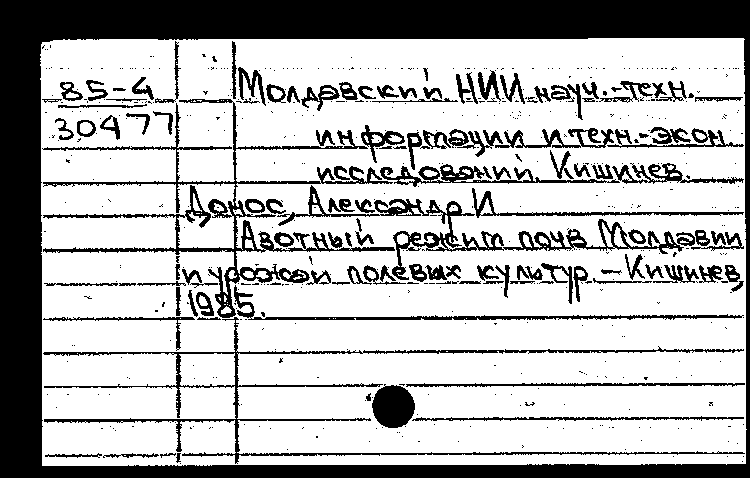 85-4 Молдавский НИИ науч.-техн.
30477
информации и техн.-экон.
исследований. Кишинев.
Донос, Александр И
Азотный режим почв Молдавии
и урожай полевых культур. – Кишинев,
1985.